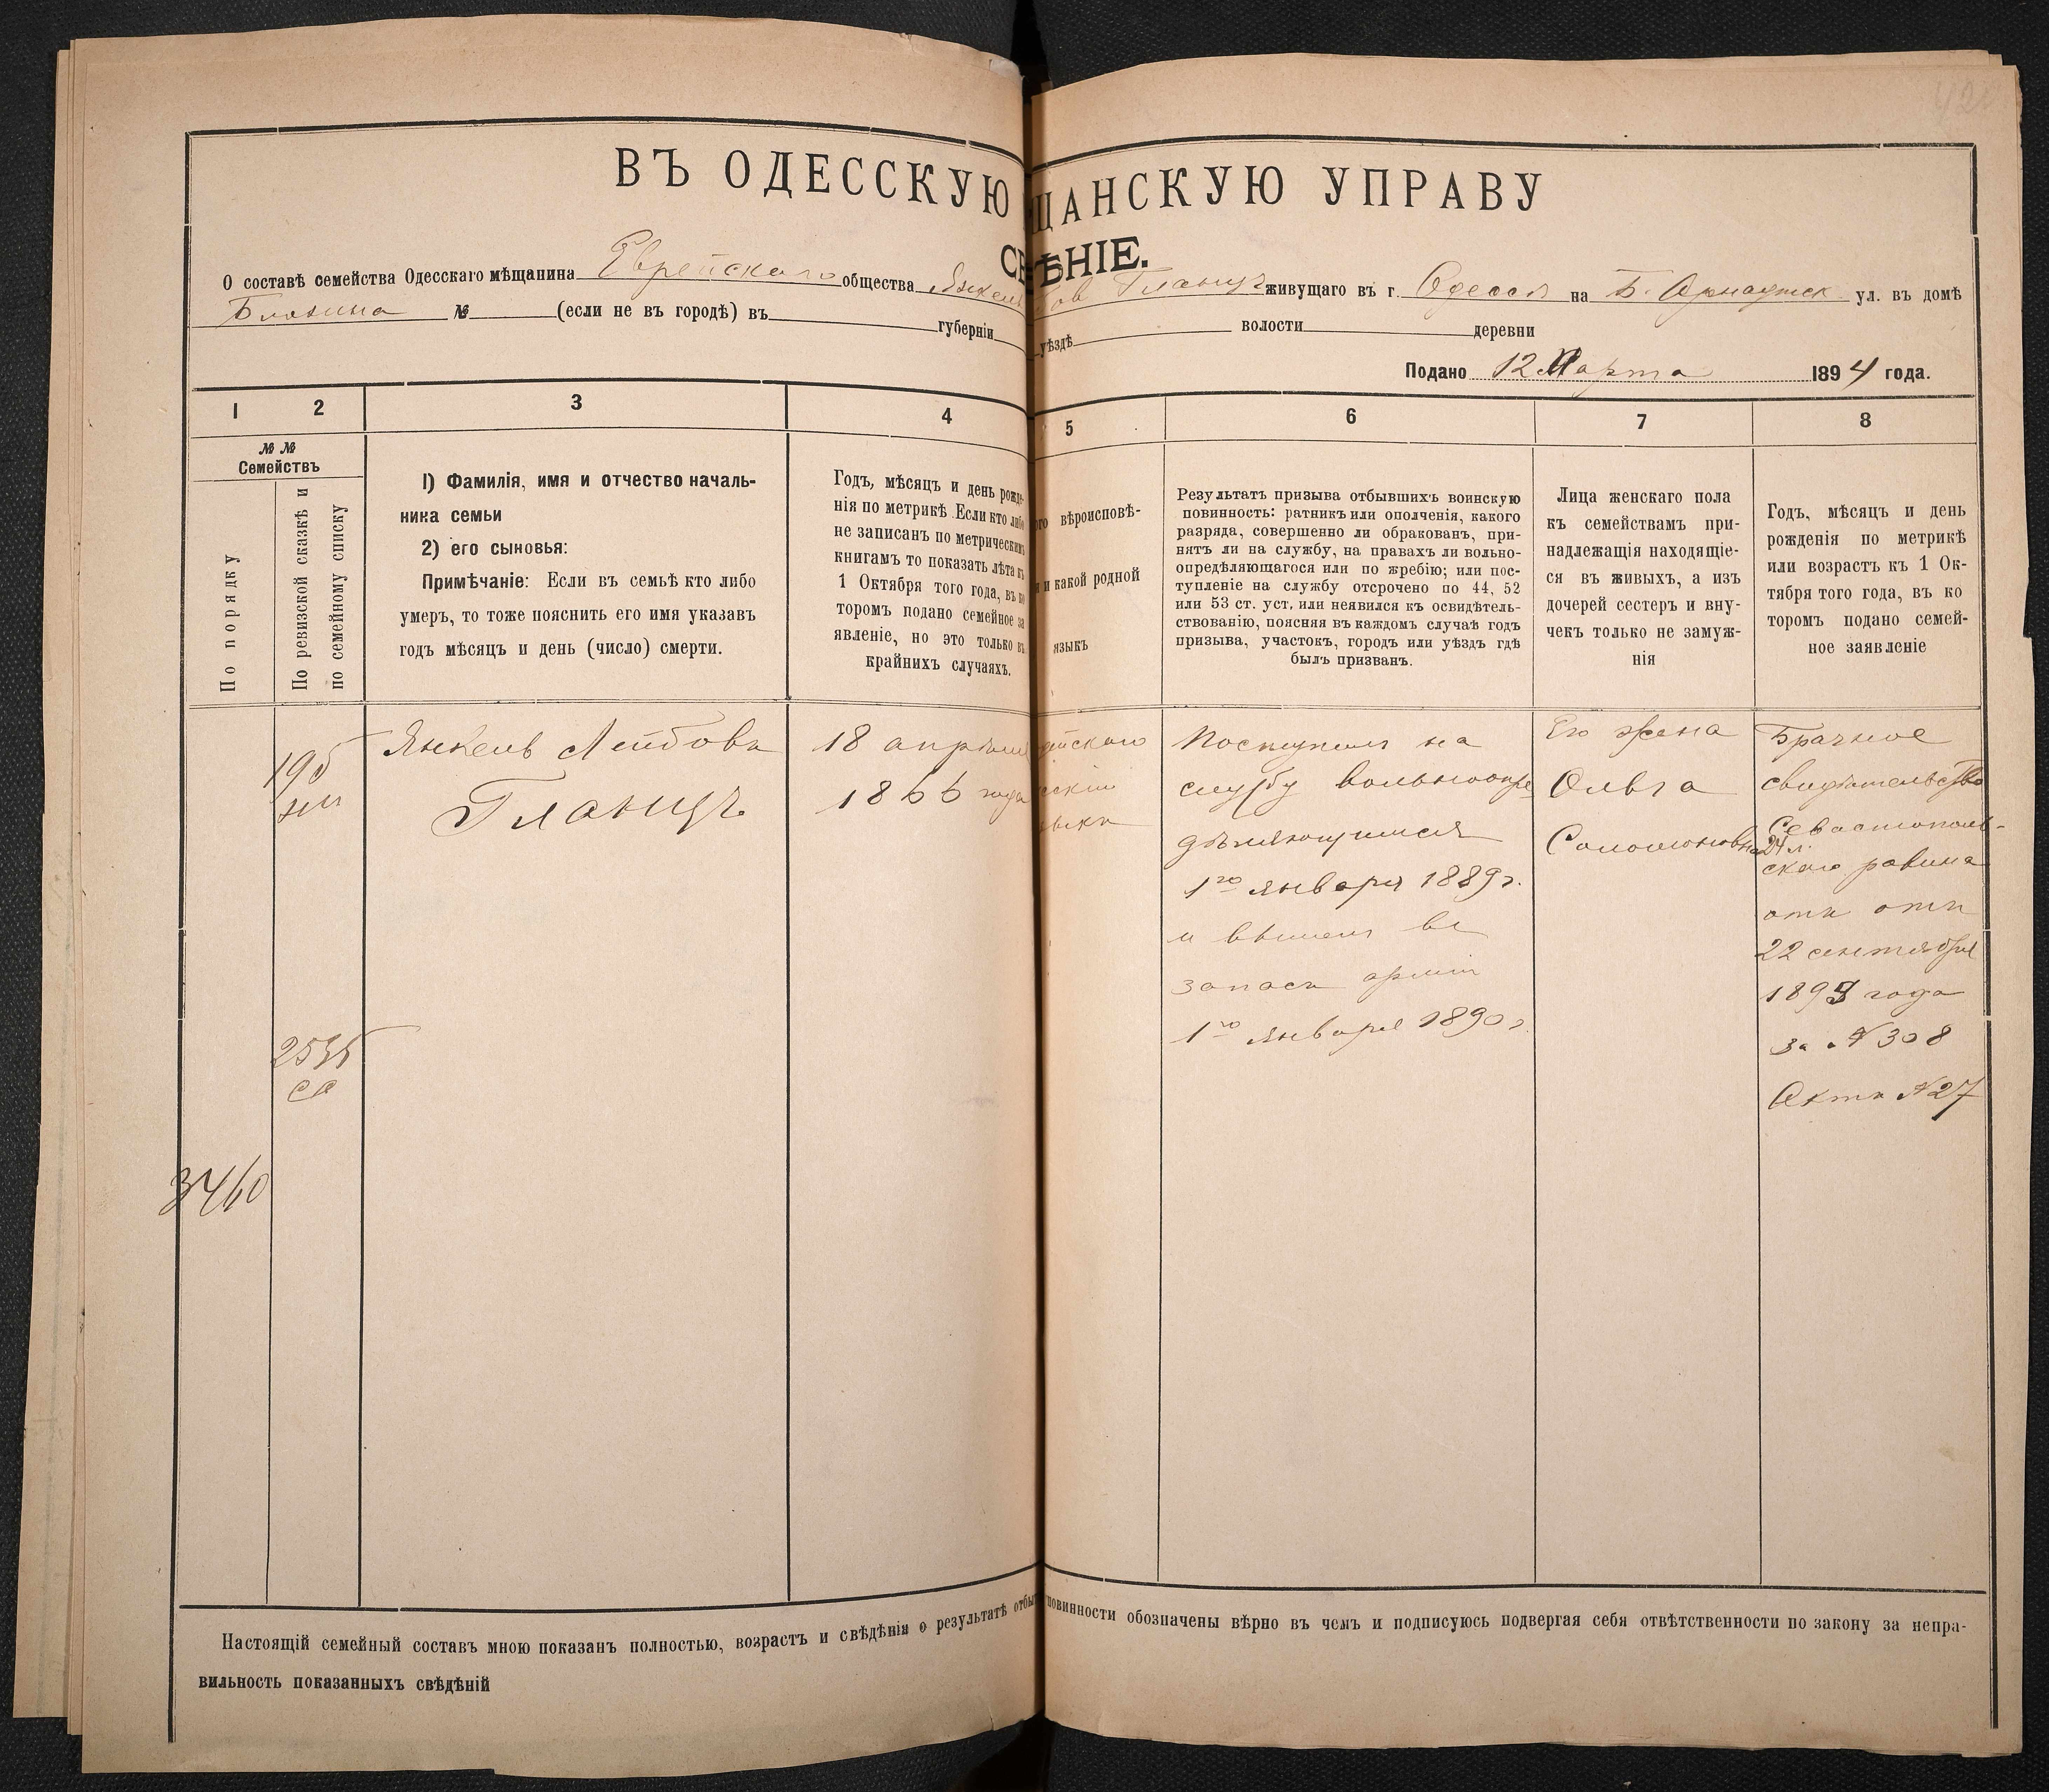 ВЪ ОДЕССКУЮ ЩАНСКУЮ УПРАВУ
СВ ѢНІЕ.
О составѣ семейства Одесскаго мѣщанина Еврейскаго общества Янкель бов Гланцъ живущаго въ г. Одессѣ на Б. Арнаутск ул. въ домѣ
№ (если не въ городѣ) въ губерніи уѣздѣ волости деревни
Подано 12 Марта 1894 года.
1 2 3 4 5 6 7 8
№ №
Семействъ
По порядку
По ревизской сказкѣ и
по семейному списку
1) Фамилія, имя и отчество началь-
ника семьи
2) его сыновья:
Примѣчаніе: Если въ семьѣ кто либо
умеръ, то тоже пояснить его имя указавъ
годъ мѣсяцъ и день (число) смерти.
Годъ, мѣсяцъ и день рожде-
нія по метрикѣ. Если кто либо
не записанъ по метрическимъ
книгамъ то показать лѣта къ
1 Октября того года, въ ко
торомъ подано семейное за
явленіе, но это только въ
крайнихъ случаяхъ.
го вѣроисповѣ-
и и какой родной
языкъ
Результатъ призыва отбывшихъ воинскую
повинность: ратникъ или ополченія, какого
разряда, совершенно ли обракованъ, при-
нятъ ли на службу, на правахъ ли вольно-
опредѣляющагося или по жребію; или пос-
тупленіе на службу отсрочено по 44, 52
или 53 ст. уст. или неявился къ освидѣтель-
ствованію, поясняя въ каждомъ случаѣ годъ
призыва, участокъ, городъ или уѣздъ гдѣ
былъ призванъ.
Лица женскаго пола
къ семействамъ при-
надлежащія находящіе-
ся въ живыхъ, а изъ
дочерей сестеръ и вну-
чекъ только не замуж-
нія
Годъ, мѣсяцъ и день
рожденія по метрикѣ
или возрастъ къ 1 Ок-
тября того года, въ ко
торомъ подано семей-
ное заявленіе
195
Янкель Лейбовъ
Гланцъ
18 апрѣля
1866 года
ейскаго
сскій
языкъ
Поступилъ на
службу вольноопре
дѣляющимся
1го января 1889 г.
и вышелъ въ
запасъ арміи
1го января 1890 г.
Его жена
Ольга
Соломоновна
24 л.
Брачное
свидѣтельство
Севастополь-
скаго равина
отъ отъ
22 сентября
1893 года
за № 308
Актъ № 27
2535
3460
Настоящій семейный составъ мною показанъ полностью, возрастъ и свѣдѣнія о результатѣ отбы повинности обозначены вѣрно въ чемъ и подписуюсь подвергая себя отвѣтственности по закону за непра-
вильность показанныхъ свѣдѣній